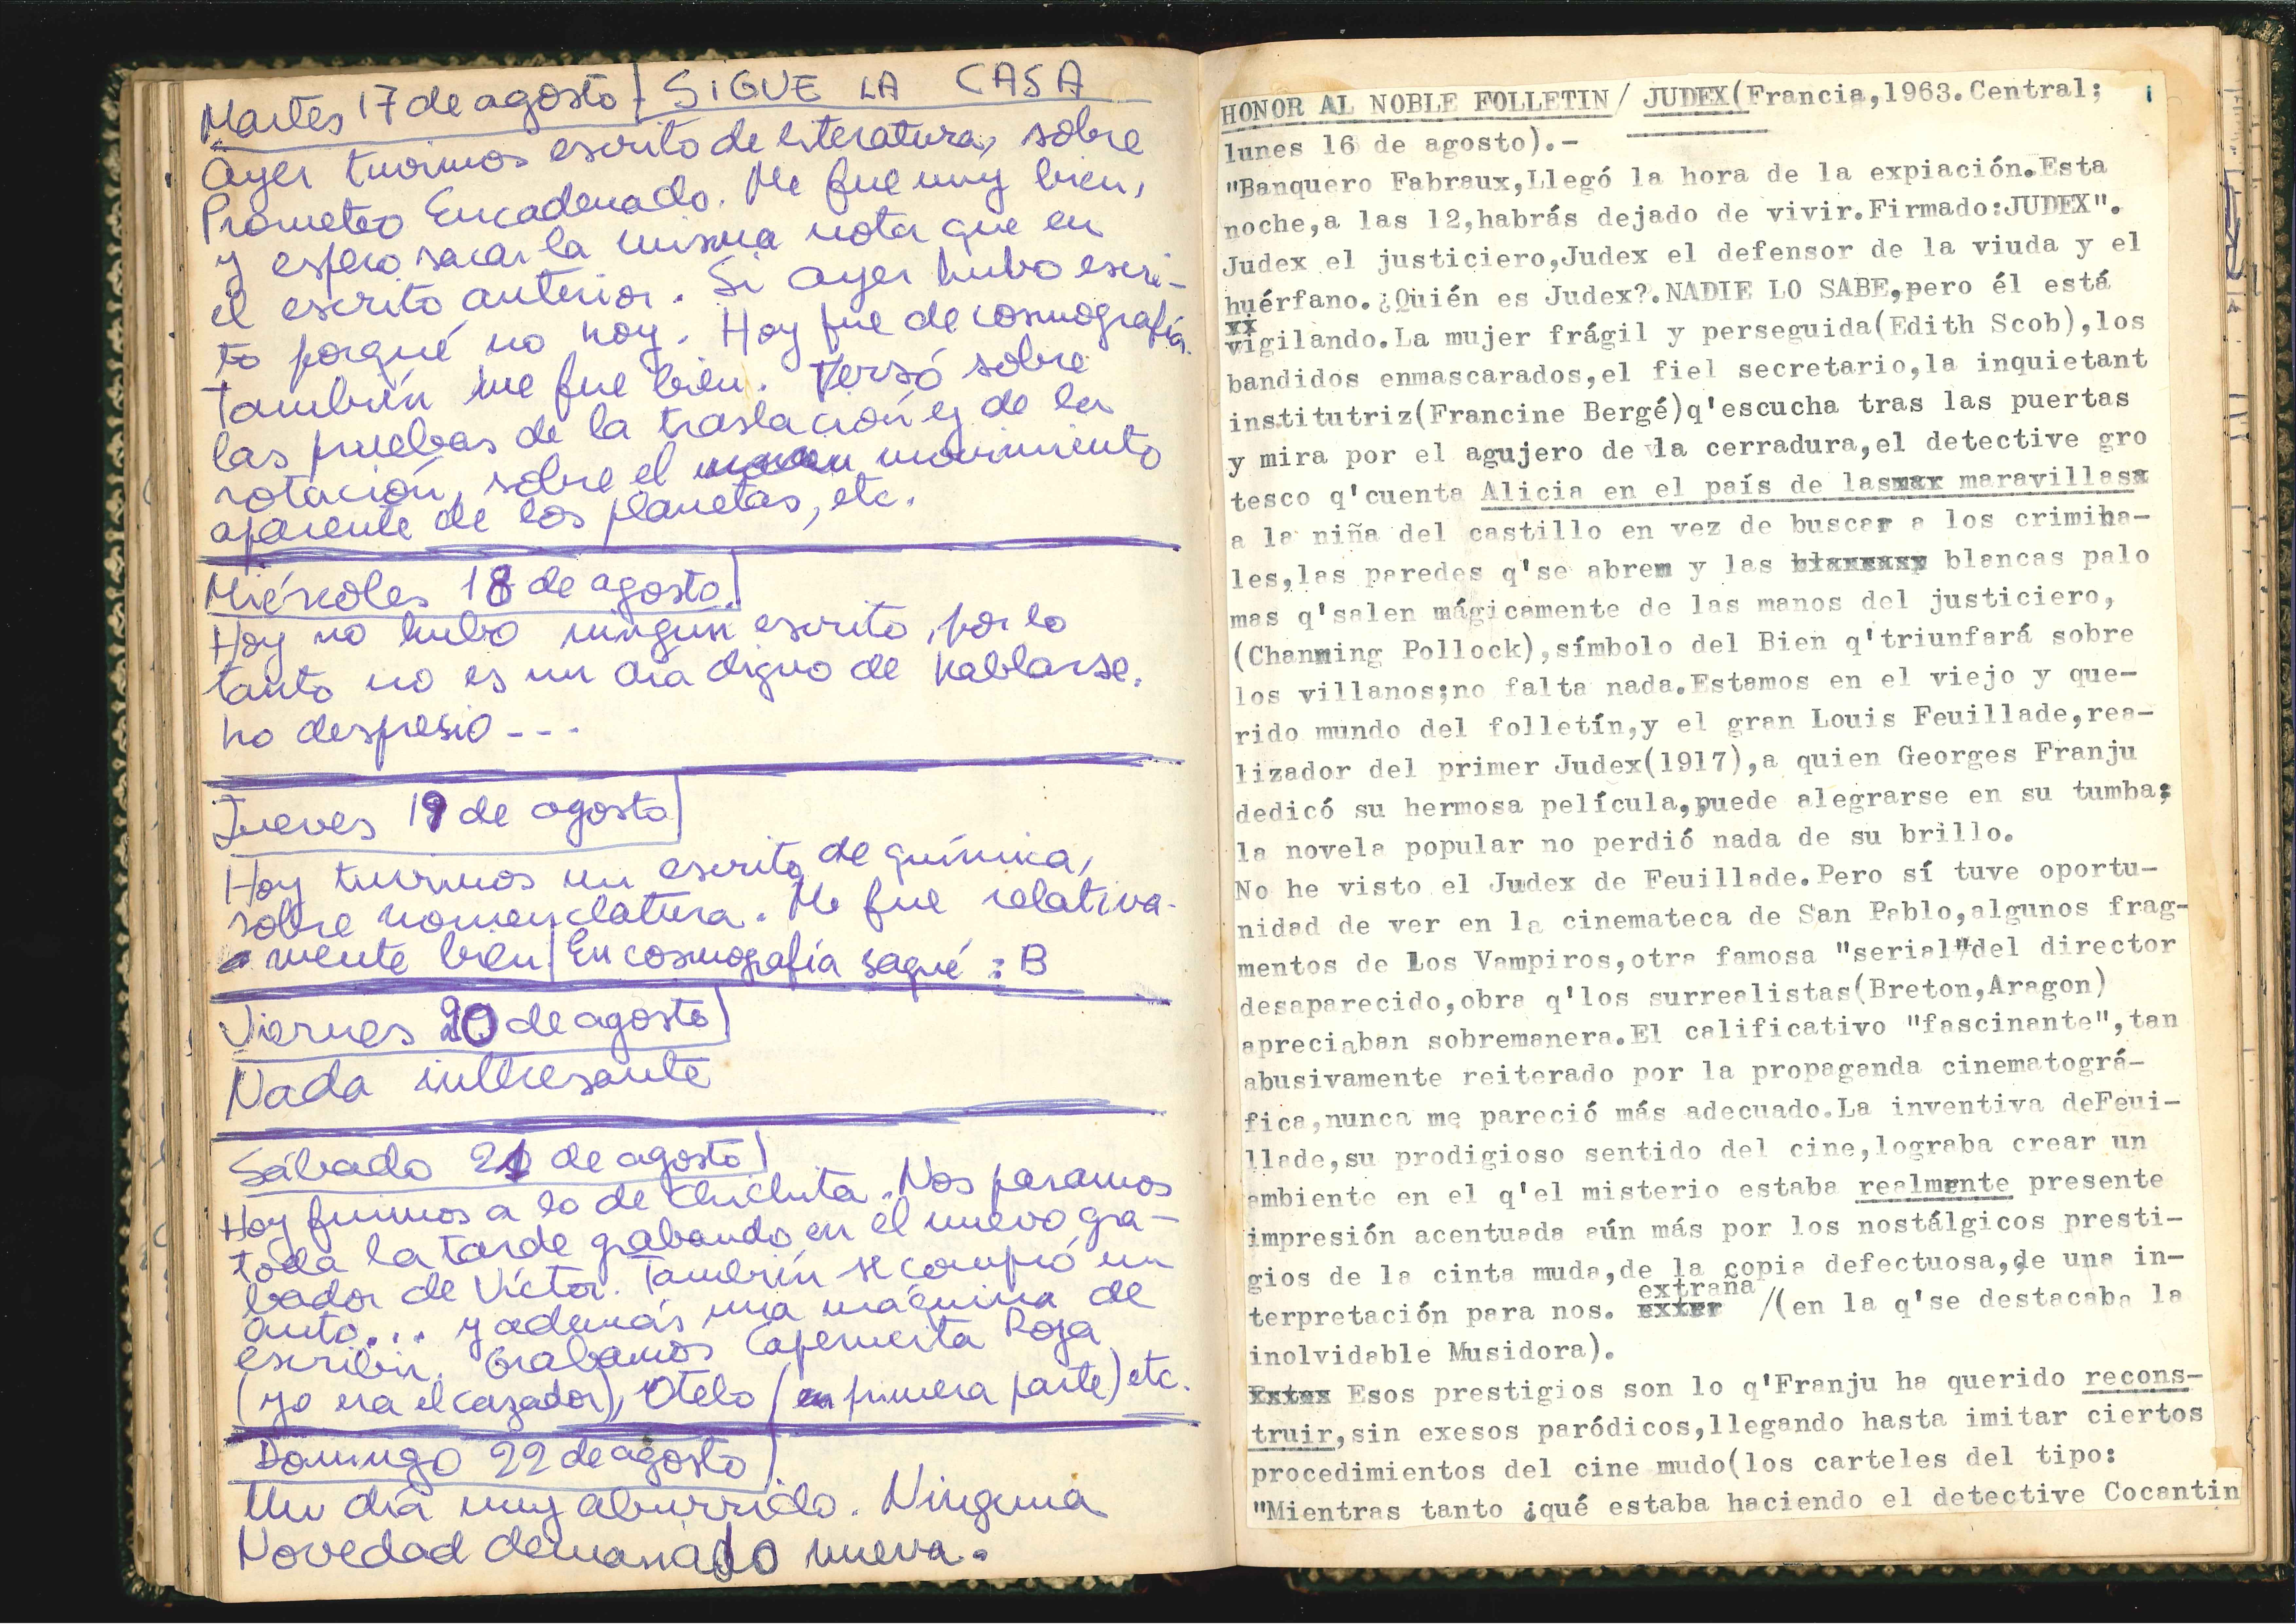 Martes 17 de agosto / SIGUE LA CASA
Ayer tuvimos escrito de literatura, sobre
Prometeo Encadenado. Me fue muy bien,
y espero sacar la misma nota que en
el escrito anterior. Si ayer hubo escri-
to porqué no hoy. Hoy fue de cosmografía.
También me fue bien. Versó sobre
las pruebas de la traslación y de la
rotación, sobre el movimiento
aparente de los planetas, etc.
Miércoles 18 de agosto
Hoy no hubo ningún escrito, por lo
tanto no es un día digno de hablarse.
lo despresio - - -
Jueves 19 de agosto
Hoy tuvimos un escrito de química,
sobre nomenclatura. Me fue relativa-
mente bien | En cosmografía saqué : B
Viernes 20 de agosto
Nada interesante
Sábado 21 de agosto
Hoy fuimos a lo de Chichita. Nos pasamos
toda la tarde grabando en el nuevo gra-
bador de Víctor. También se compró un
auto... y además una máquina de
escribir. Grabamos Caperucita Roja
(yo era el cazador), Otelo (en primera parte) etc.
Domingo 22 de agosto
Un día muy aburrido. Ninguna
Novedad demasiado nueva.
HONOR AL NOBLE FOLLETIN/ JUDEX(Francia,1963.Central;
lunes 16 de agosto).-
"Banquero Fabraux,Llegó la hora de la expiación.Esta
noche,a las 12,habrás dejado de vivir.Firmado:JUDEX".
Judex el justiciero,Judex el defensor de la viuda y el
huérfano.¿Quién es Judex?.NADIE LO SABE,pero él está
xx
vigilando.La mujer frágil y perseguida(Edith Scob),los
bandidos enmascarados,el fiel secretario,la inquietant
institutriz(Francine Bergé)q'escucha tras las puertas
y mira por el agujero de la cerradura,el detective gro
tesco q'cuenta Alicia en el país de lasmax maravillasx
a la niña del castillo en vez de buscar a los crimina-
les,las paredes q'se abrem y las blaxxxxy blancas palo
mas q'salen mágicamente de las manos del justiciero,
(Channing Pollock),símbolo del Bien q'triunfará sobre
los villanos;no falta nada.Estamos en el viejo y que-
rido mundo del folletín,y el gran Louis Feuillade,rea-
lizador del primer Judex(1917),a quien Georges Franju
dedicó su hermosa película,puede alegrarse en su tumba;
la novela popular no perdió nada de su brillo.
No he visto el Judex de Feuillade.Pero sí tuve oportu-
nidad de ver en la cinemateca de San Pablo,algunos frag-
mentos de Los Vampiros,otra famosa "serial"del director
desaparecido,obra q'los surrealistas(Breton,Aragon)
apreciaban sobremanera.El calificativo "fascinante",tan
abusivamente reiterado por la propaganda cinematográ-
fica,nunca me pareció más adecuado.La inventiva deFeui-
llade,su prodigioso sentido del cine,lograba crear un
ambiente en el q'el misterio estaba realmente presente
impresión acentuada aún más por los nostálgicos presti-
gios de la cinta muda,de la copia defectuosa,de una in-
terpretación para nos. extraña /(en la q'se destacaba la
inolvidable Musidora).
Esos prestigios son lo q'Franju ha querido recons-
truir,sin exesos paródicos,llegando hasta imitar ciertos
procedimientos del cine mudo(los carteles del tipo:
"Mientras tanto ¿qué estaba haciendo el detective Cocantin